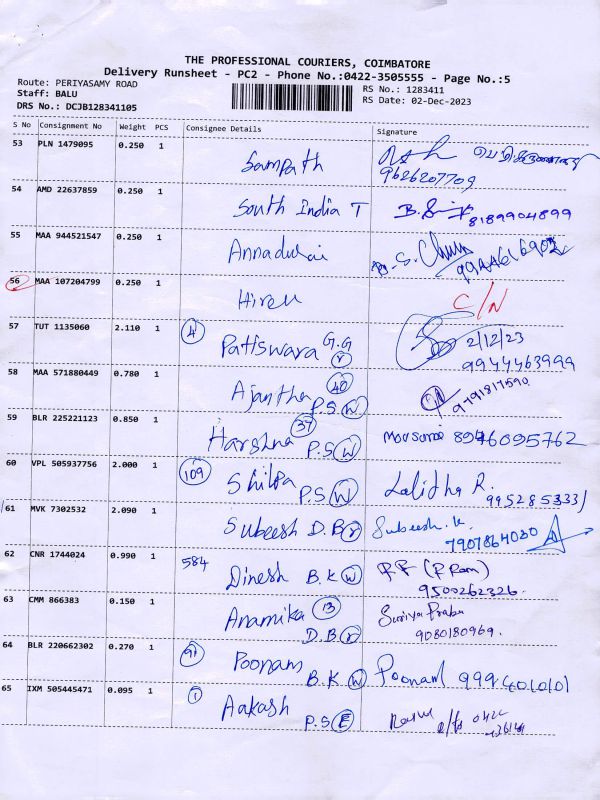 THE PROFESSIONAL COURIERS, COIMBATORE
Delivery Runsheet - PC2 - Phone No.:0422-3505555 - Page No.:5
Route: PERIYASAMY ROAD
RS No.: 1283411
Staff: BALU
RS Date: 02-Dec-2023
DRS No.: DCJB128341105
S No Consignment No Weight PCS Consignee Details Signature
53 PLN 1479095 0.250 1 Sampath
9626207709
54 AMD 22637859 0.250 1 South India T 8189904899
55 MAA 944521547 0.250 1 Annadurai
56 MAA 107204799 0.250 1 Hiren C/N
57 TUT 1135060 2.110 1 4 Pattswara G.G r 2/12/23
9944463999
58 MAA 571880449 0.780 1 Ajantha 40
P.S W 9791817590
59 BLR 225221123 0.850 1 Harshna 37
P.S W
60 VPL 505937756 2.000 1 109 Shilpa
P.S W Lalitha R.
9952853331
61 MVK 7302532 2.090 1 Subeesh D.B r Subeesh. K
7907864030
62 CNR 1744024 0.990 1 584 Dinesh B.K W
9500262326
63 CMM 866383 0.150 1 Anamika 13
D.B r Suriya Prabu
9080180969
64 BLR 220662302 0.270 1 91 Poonam
B.K W Poonam 9994010101
65 IXM 505445471 0.095 1 1 Aakash
P.S E 0422